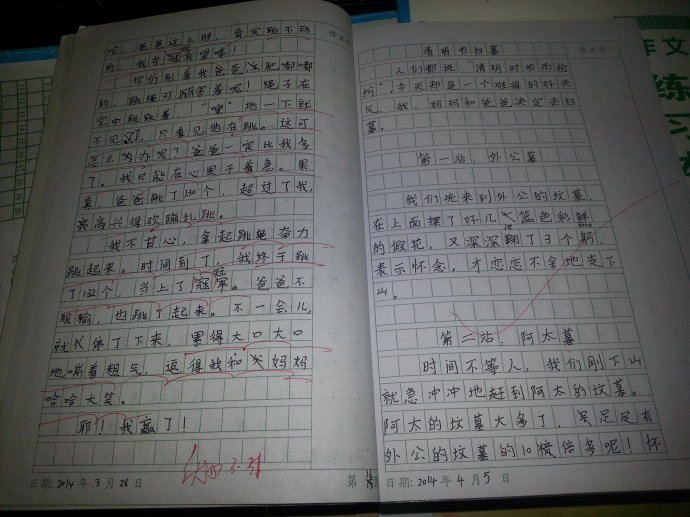 哈，爸爸这么胖，肯定跳不动
的，我夺冠有望喽！
你们别看我爸爸，肥嘟嘟
的，跳绳可厉害着呢！绳子在
空中跳跳着，"唑"地一下就
不见了，只看见他在跳。这可
怎么为办呢？爸爸一定比我多
了。我只能在心里干着急。果
真，爸爸跳了130个，超过了我，
来高兴得欢蹦乱跳。
我不甘心，拿起跳绳奋力
跳起来。时间到了，我终于跳
冠
了132个，当上了冠军。爸爸不
服输，也跳了起来。不一会儿，
就停了下来，累得大口大口
地喘着粗气，逗得我和妈妈
哈哈大笑。
耶！我赢了！
日期：2014年3月28日
第 页
清明节扫墓
人们都说"清明时节雨纷
纷"今天却是一个难得的好天
气，我、妈妈和爸爸决定去扫
墓。
第一站：外公墓
我们先来到外公的坟墓，
在上面摆了好几篮色彩鲜
的假花，又深深鞠了3个躬，
表示怀念，才恋恋不舍地走下
山。
第二站：阿太墓
时间不等人，我们刚下山
就急冲冲地赶到阿太的坟墓。
阿太的坟墓大多了，足足有
外公的坟墓的10倍多呢！怀
日期：2014年4月5日
作文
练
习